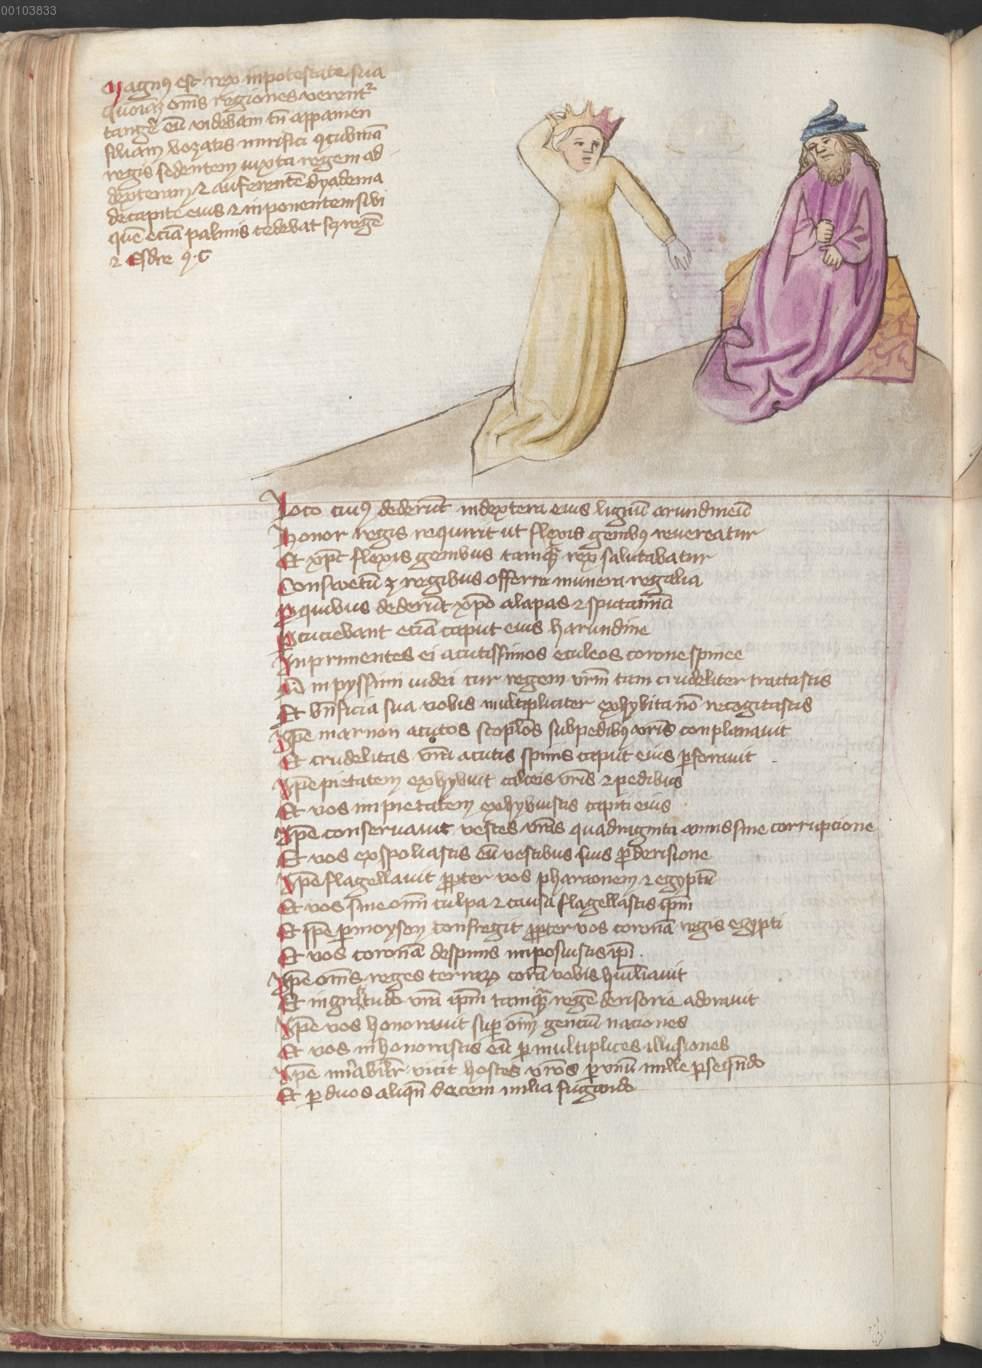 00103833
Magn9 est rex in potestate sua
quoniā om̄s regiones verent᷑
tangē eū videbam tn̄ appamen
filiam bezatis mirifici ꝯcubinā
regis sedentem iuxta regem ad
dexteram ⁊ auferentē dyadema
de capite eius ⁊ imponentem sibi
quē eciā palmis cedebat
⁊ Esdre
Loco cui9 dederūt in dextera eius lignū arundineū
Honor regis requirit ut flexis genibus reuereatur
Et xp̄c flexis genibus tamq̄ rex salutabatur
Consuetū ē regibus offerre munera regalia
P quibus dederūt xp̄o alapas ⁊ sputamīa
Pcuciebant eciā caput eius harundine
Inprimentes ei acutissimos aculeos corone spinee
O inpyssimi iudei cur regem vrm̄ tam crudeliter tractastis
Et bn̄ficia sua vobis multipliciter exhybita nō recogitastis
Xpē in arnon acutos scoplos sub pedibus vr̄is conplanauit
Et crudelitas vr̄a acutis spinis caput eius ꝑforauit
Xpē pietatem exhybuit calceis vr̄is ⁊ pedibus
Et vos impietatem exhybuistis capiti eius
Xpē conseruauit vestes vr̄as quadraginta annis sine corrupcione
Et vos exspoliastis eū vestibus suis ꝑ derisione
Xpē flagellauit ꝓpter vos pharaonem ⁊ egyptū
Et vos sine omī culpa ⁊ causa flagellastis ip̄m
Et ipse ꝑ moysen confregit ꝓpter vos coronā regis egypti
Et vos coronā de spinis imposuistis ip̄i
Xpē om̄s reges terrarꝝ corā vobis hūiliauit
Et ingratitudo vr̄a ip̄m tamq̄ regē derisorie adorauit
Xpē vos honorauit suꝑ om̄ gentiū naciones
Et vos inhonorastis eū ꝑ multiplices illusiones
Xpē mirabilr̄ vicit hostes vr̄os ꝑ vnū mille ꝑseqn̄do
Et ꝑ duos aliqn̄ decem milia fugando